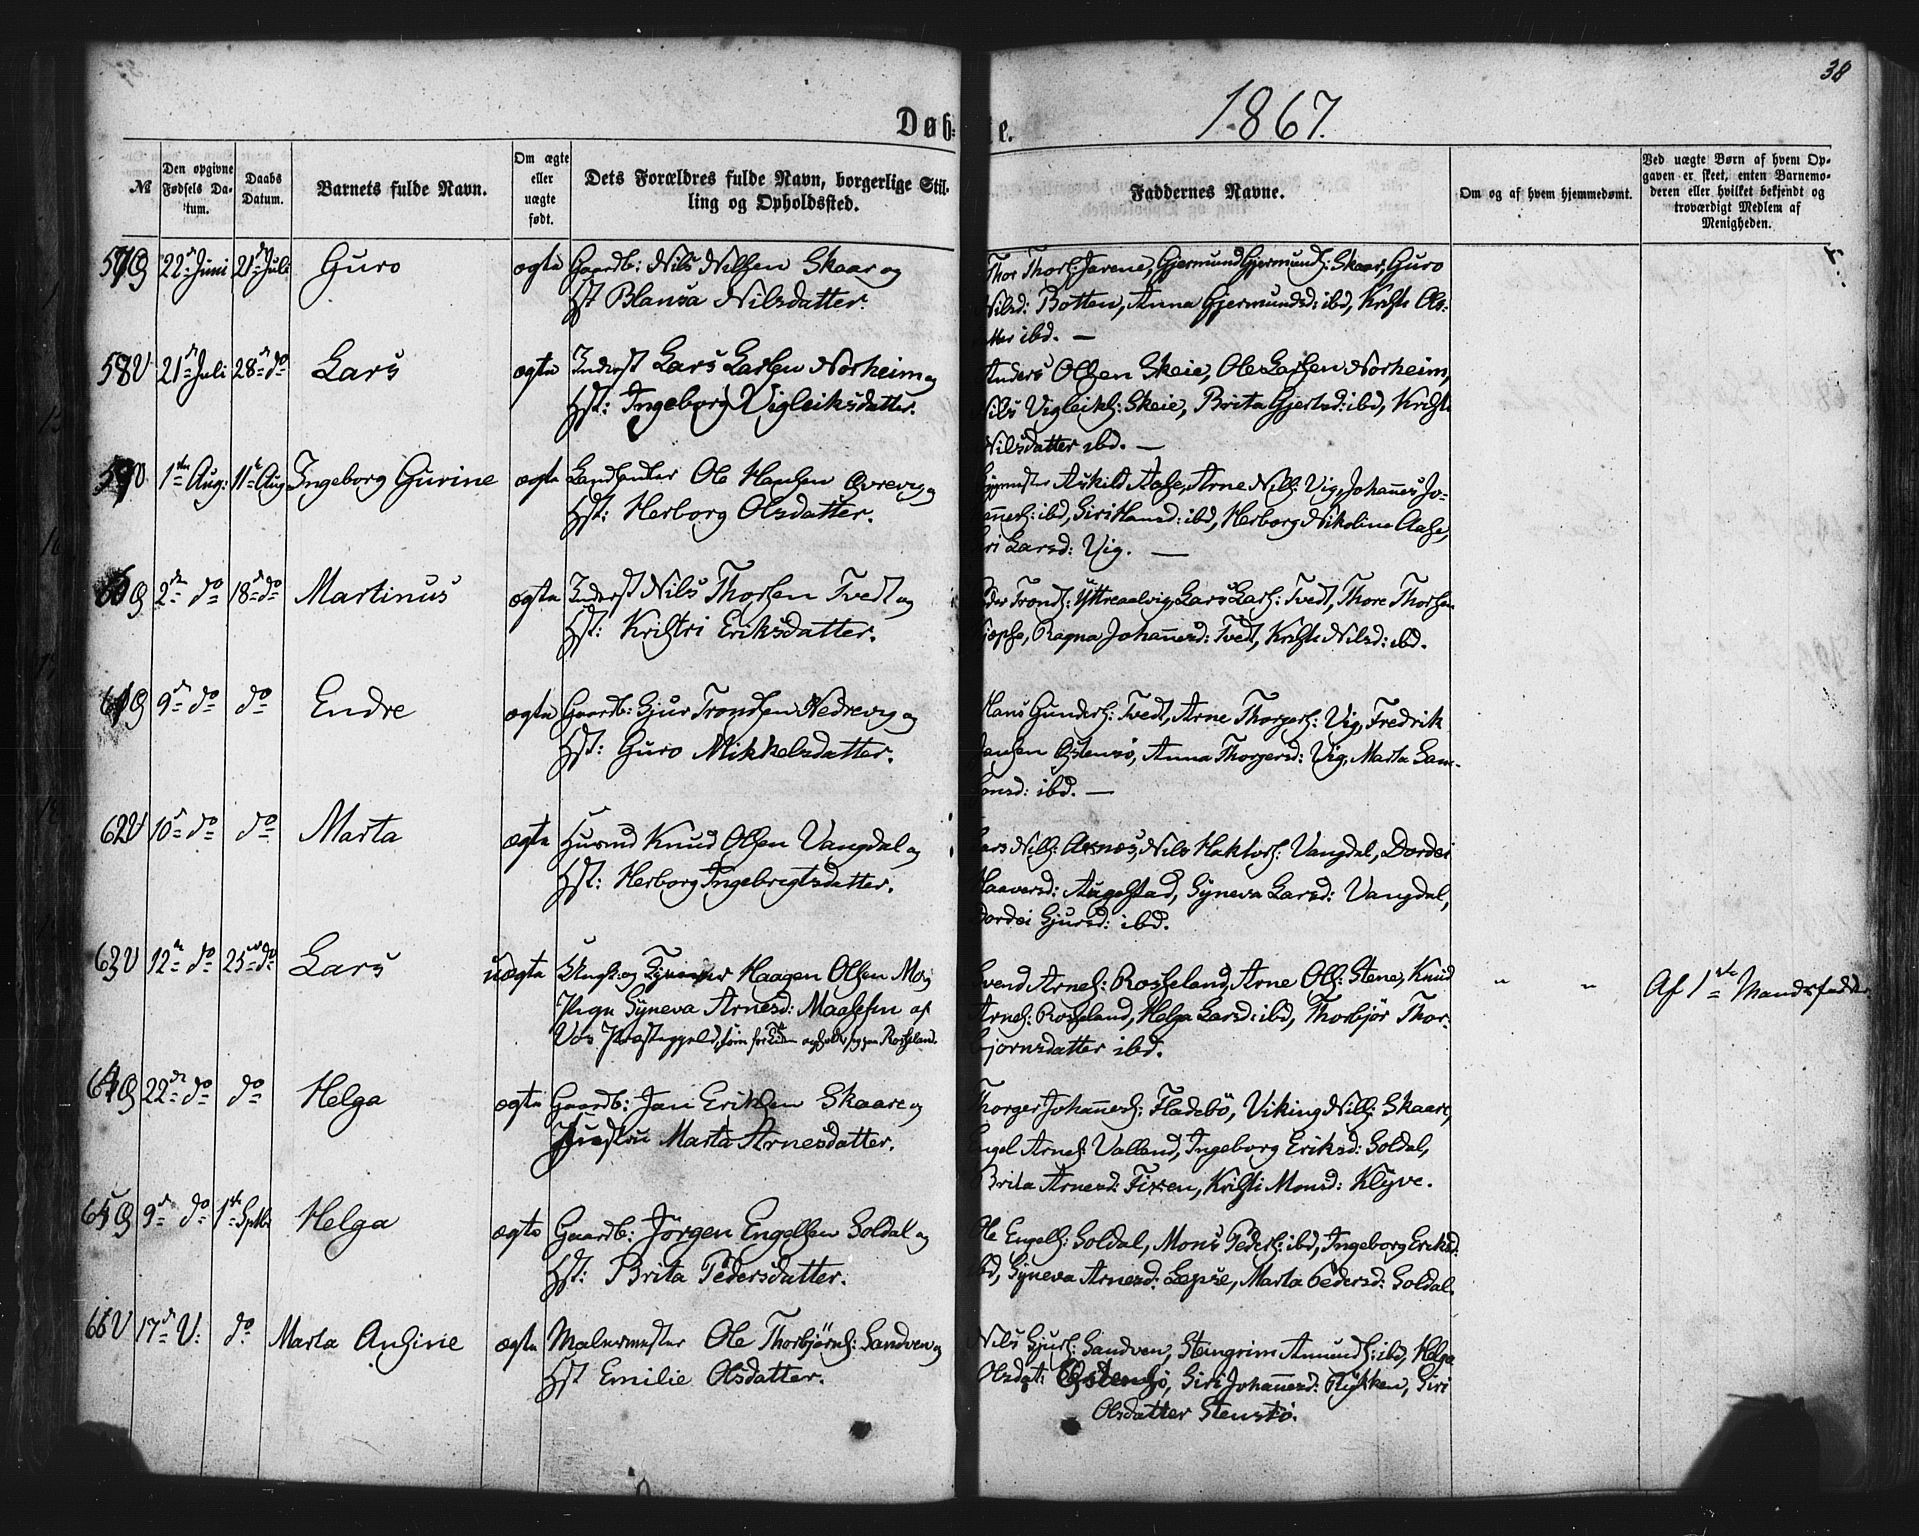 38
Døb: e. 1867.
№
Den opgivne Fødsels Da-tum.
Daabs Datum.
Barnets fulde Navn.
Om ægte eller uægte født.
Dets Forældres fulde Navn, borgerlige Stil-
ling og Opholdssted.
Faddernes Navne.
Om og af hvem hjemmedømt.
Ved uægte Børn af hvem Op-
gaven er skeet, enten Barnemo-
deren eller hvilket bekjendt og
troværdigt Medlem af
Menigheden.
57 22 Juni 21 Juli Guro ægte Gaardb: Nils Nilssen Skaar og
Hst Blansa Nilsdatter.
Thor Thors: Jarene, Gjermund Gjermunds: Skaar, Guro
Nilsd: Botten, Anna Gjermundsd: ibd, Kristi Ols-
datter ibd. —
58 V 21 Juli 28 do Lars ægte Inderst Lars Larssen Norheim og
Hst: Ingeborg Vigleiksdatter.
Anders Olssen Skeie, Ole Larssen Norheim,
Nils Vigleiks: Skeie, Brita Gjertsd: ibd, Kristi
Nilsdatter ibd. —
59 V 1 Aug: 11 Aug Ingeborg Gurine ægte Ole Hanssen Øvrevig og
Hst: Herborg Olsdatter.
Askild Aase, Arne Nills: Vig, Johannes Jo-
hannes: ibd, Siri Hansd: ibd, Herborg Nikoline Aase,
Siri Larsd: Vig. —
60 2 do 18 do Martinus ægte Inderst Nils Thorssen Tvedt og
Hst: Kristri Eriksdatter.
Peder Tronds: Yttreaalvig, Lars Lars: Tvedt, Thore Thorssen
Ragna Johannesd: Tvedt, Kristi Nilsd: ibd.
61 9 do do Endre ægte Gaardb: Gjur Trondsen Nedrevig og
Hst: Guro Mikkelsdatter.
Hans Gunders: Tvedt, Arne Thorgers: Vig, Fredrik
Jansen Østensö, Anna Thorgersd: Vig, Marta Sam-
sonsd: ibd. —
62 V 10 do do Marta ægte Husmd Knud Olssen Vangdal og
Hst: Herborg Ingebrigtsdatter.
Lars Nills: Axnæs, Nils Haktors: Vangdal, Dordei
Haaversd: Augestad, Syneva Larsd: Vangdal,
Dordei Gjursd: ibd.
63 V 12 do 25 do Lars uægte Ungk: og Haagen Olssen Mo og
Pige Syneva Arnesd: af
Vos Præstegjeld, som for Tiden opholder sig paa Rosseland.
Svend Arnes: Rosseland, Arne Ols: Stene, Knud
Arnes: Rosseland, Helga Larsd: ibd, Thorbjör Thor-
bjornsdatter ibd.
" "
Af 1ste Mandsfadder.
64 22 do do Helga ægte Gaardb: Jan Erikssen Skaare og
Hustru Marta Arnesdatter.
Thorger Johannes: Fladebö, Viking Nills: Skaare,
Engel Arnes: Valland, Ingeborg Eriksd: Soldal,
Brita Arnesd: Fixen, Kristi Monsd: Klyve.
65 9 do 1 Septbr Helga ægte Gaardb: Jörgen Engelssen Soldal og
Hst: Brita Pedersdatter.
Ole Engels: Soldal, Mons Peders: ibd, Ingeborg Eriksd:
ibd, Syneva Arnesd: Lepsø, Marta Pedersd: Soldal.
66 V 17 V: do Marta Ansine ægte Malermester Ole Thorbjörns: Sandven og
Hst Emilie Olsdatter.
Nils Gjurs: Sandven, Steingrim Amunds: ibd, Helga
Olsdat: Østensö, Siri Johannesd: Flykken, Siri
Olsdatter Stenstö.